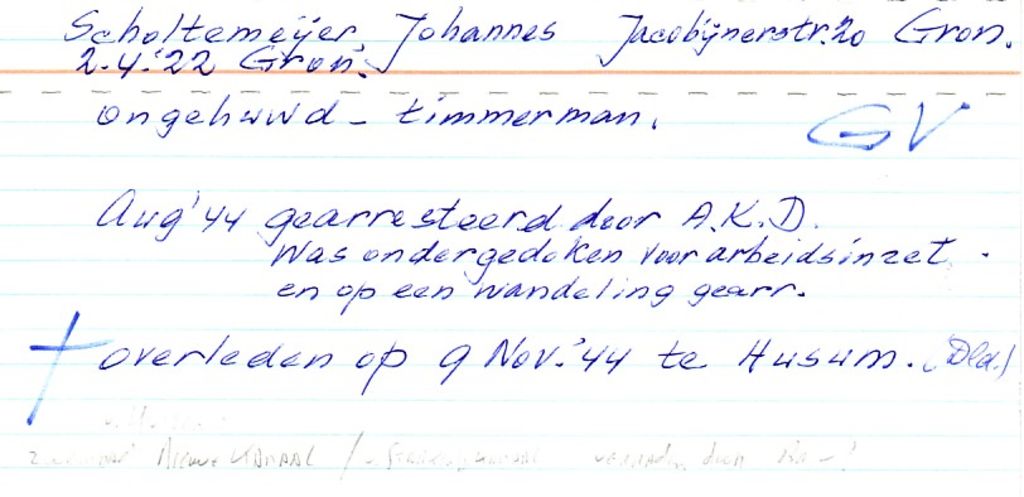 Scholtemeijer, Johannes Jacobijnerstr. 20 Gron.
2.4.'22 Gron.
Ongehuwd - timmerman.
GV
Aug '44 gearresteerd door A.K.D.
Was ondergedoken voor arbeidsinzet.
en op een wandeling gearr.
† overleden op 9 Nov.'44 te Husum. (Dld.)
Nieuwe Kanaal /